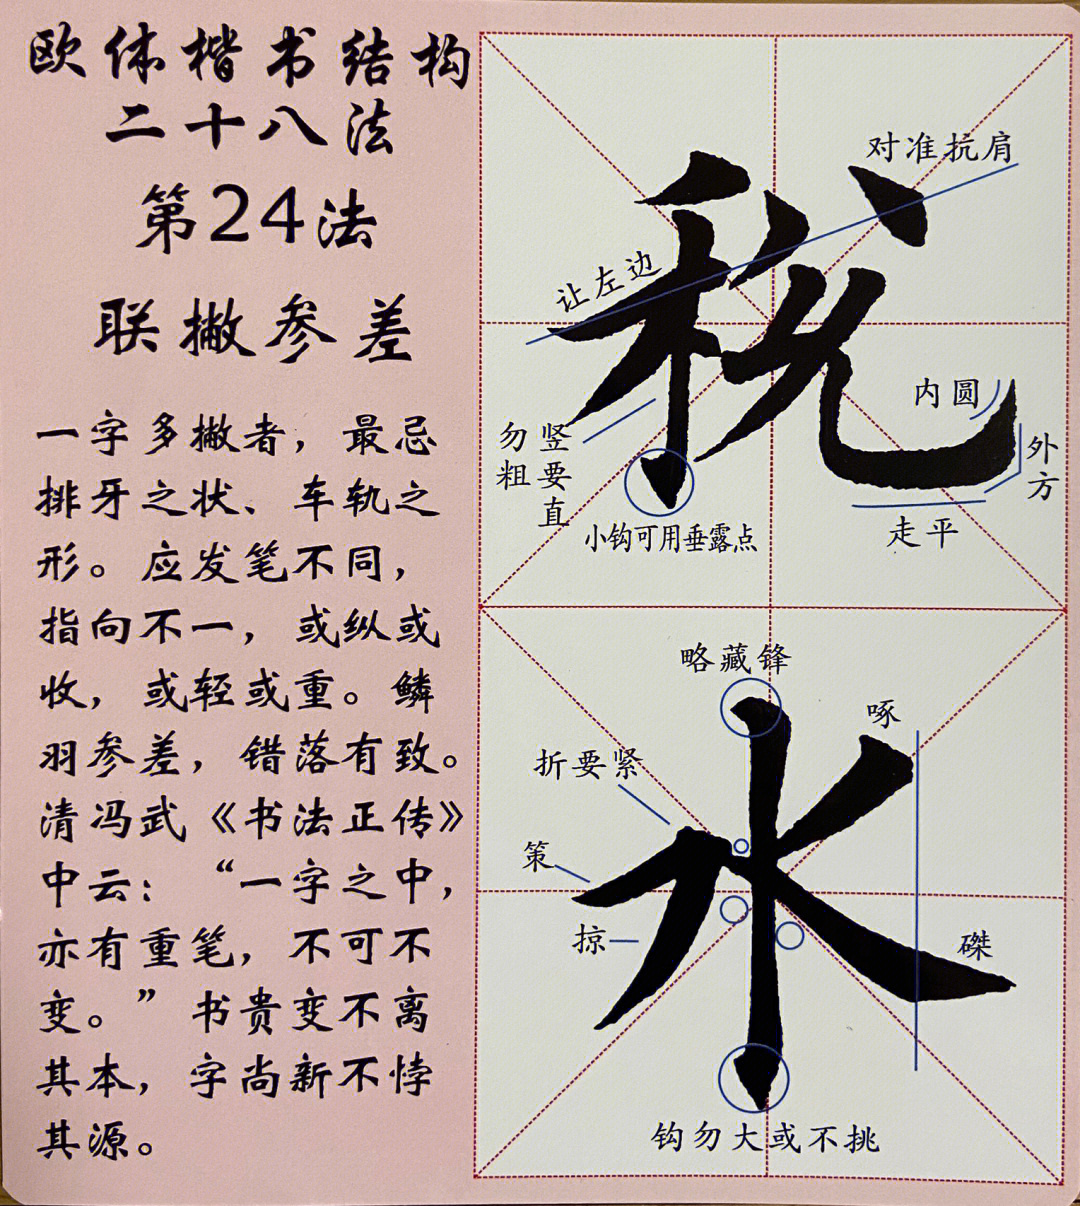 欧体楷书结构
二十八法
第24法
联撇参差
一字多撇者，最忌
排牙之状、车轨之
形。应发笔不同，
指向不一，或纵或
收，或轻或重。鳞
羽参差，错落有致。
清冯武《书法正传》
中云：“一字之中，
亦有重笔，不可不
变。”书贵变不离
其本，字尚新不悖
其源。
税
对准抗肩
让左边
内圆
外方
竖要直
勿粗
小钩可用垂露点
走平
水
略藏锋
啄
折要紧
策
掠
磔
钩勿大或不挑